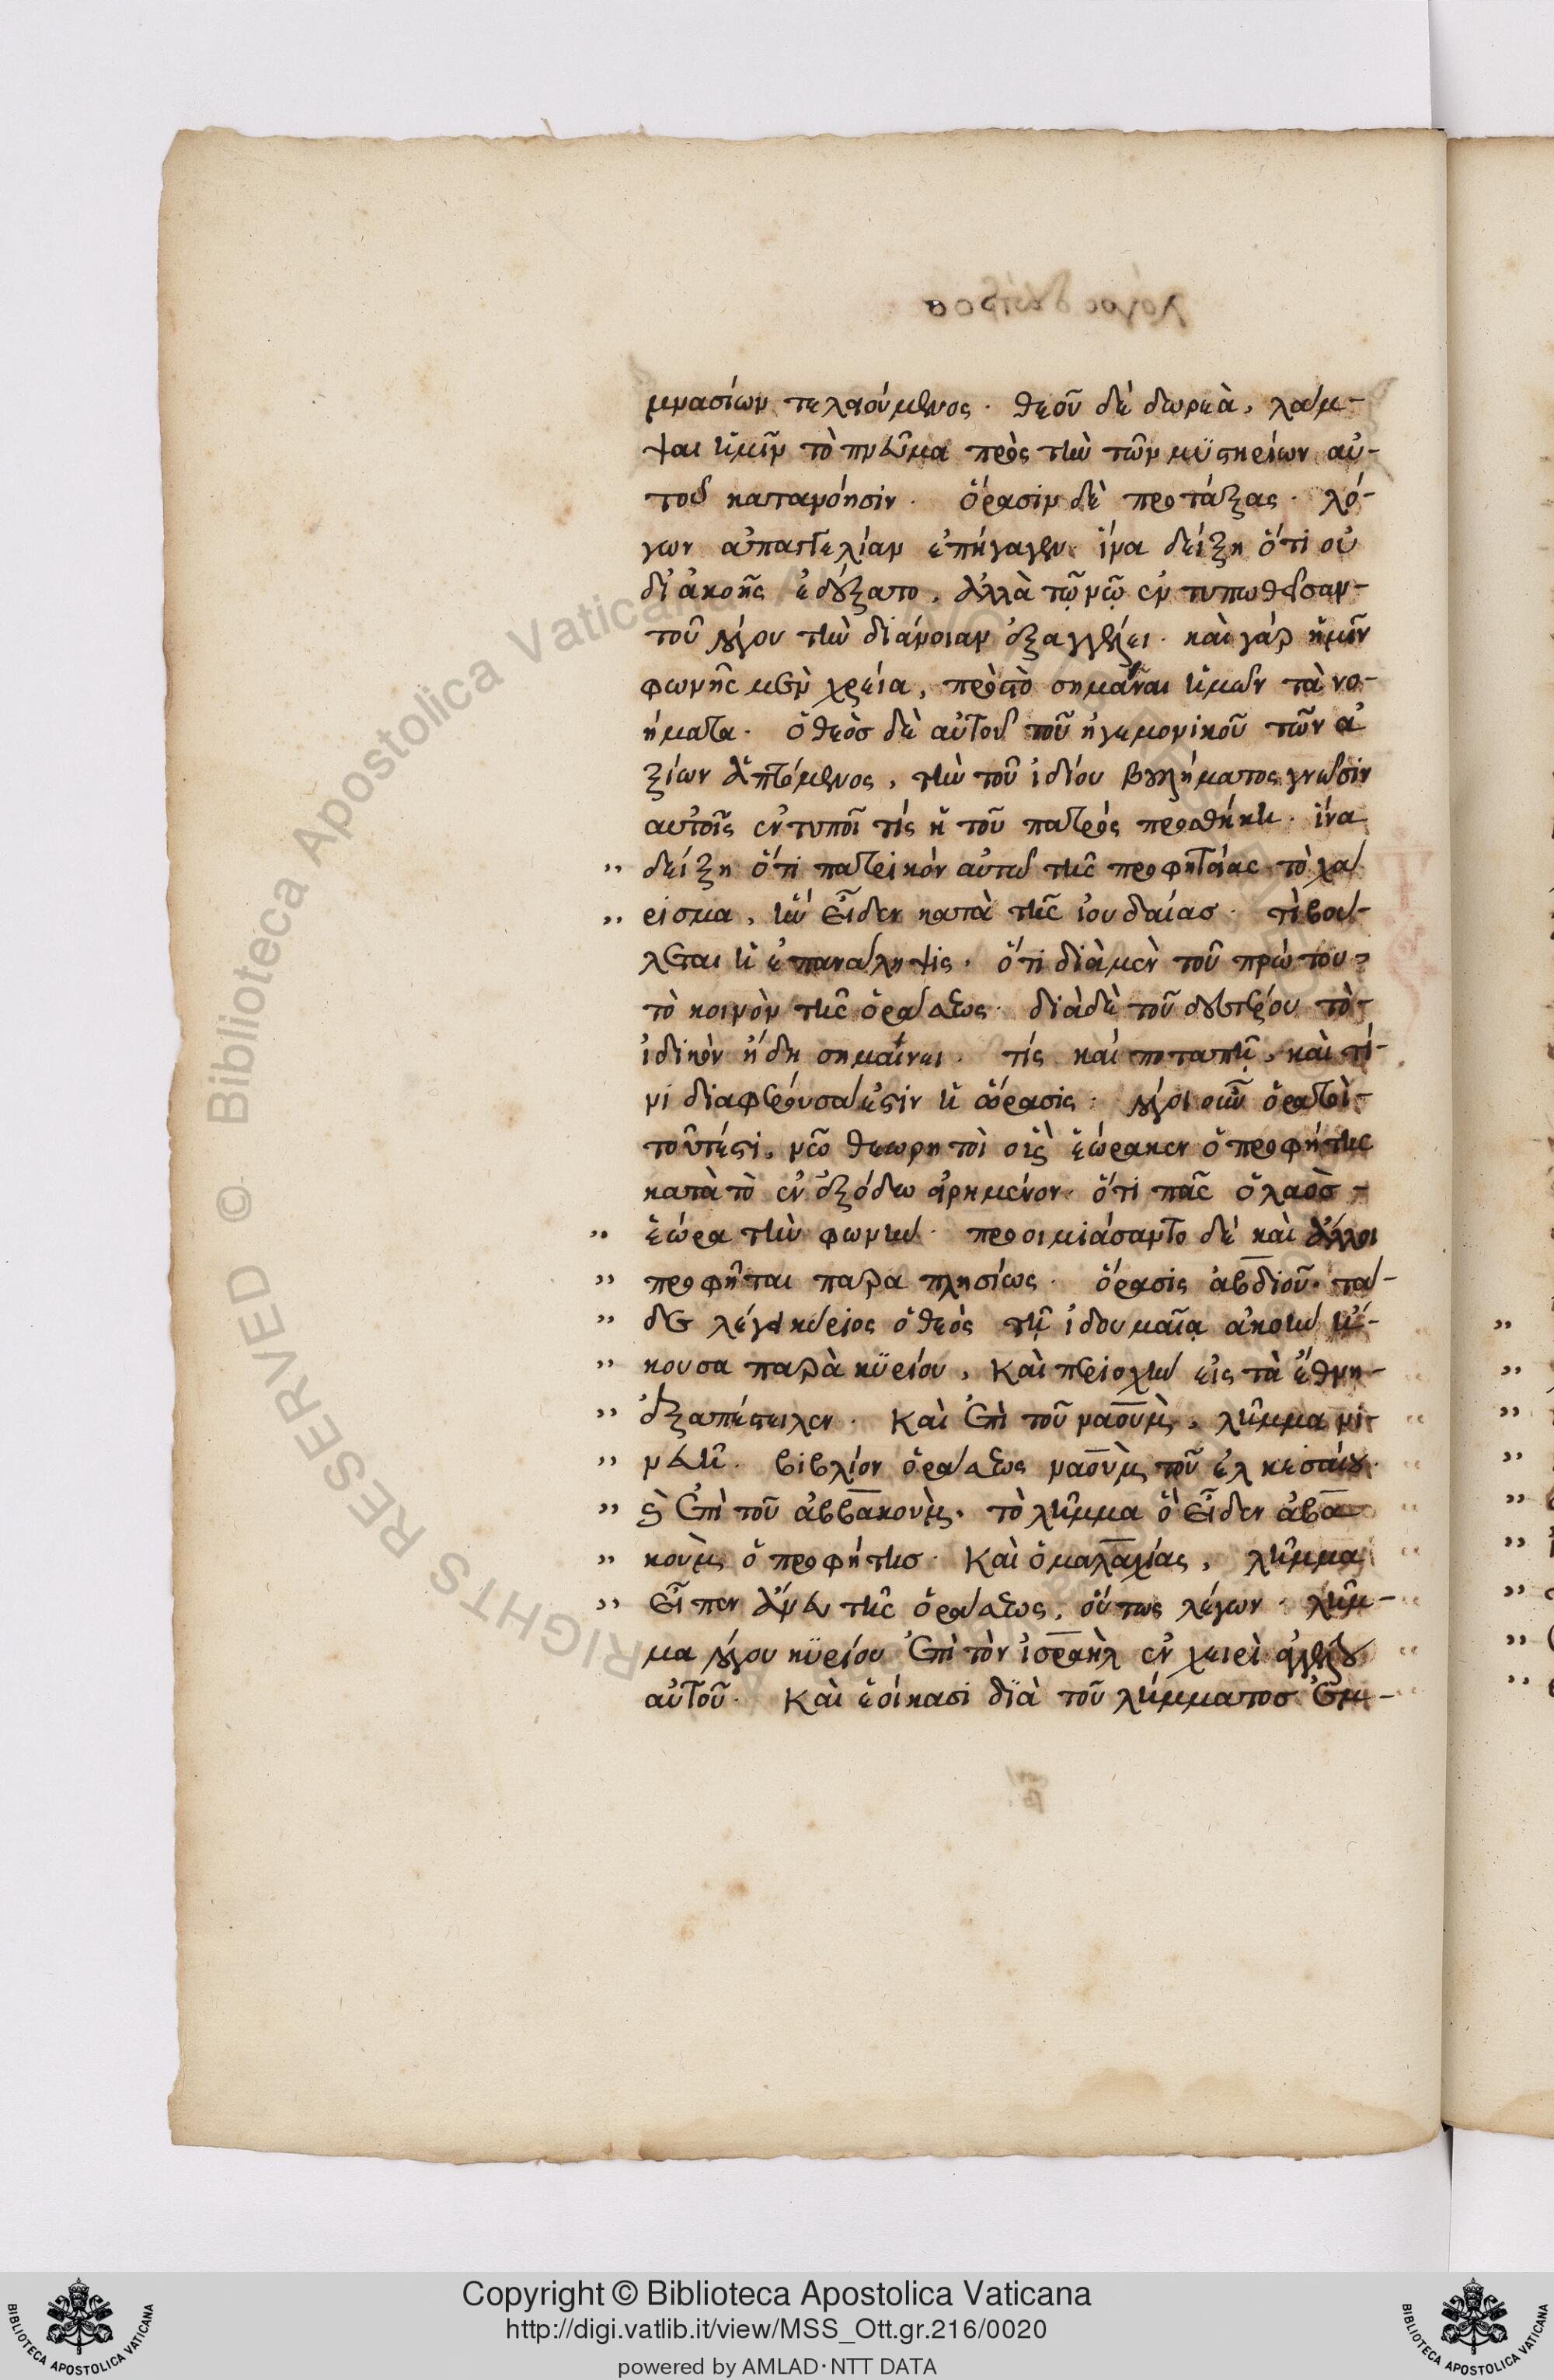 μνασίων τελειούμενος. θεοῦ δὲ δωρεὰ, λάμ-
ψαι ἡμῖν τὸ πνεῦμα πρὸς τὴν τῶν μϋστηρίων αὐ-
τοῦ κατανόησιν. ὅρασιν δὲ προτάξας. λό-
γων ἐπήγαγεν. ἵνα δείξη ὅτι οὐ
δι ἀκοῆς ἐδέξατο, ἀλλὰ τῷ νῷ ἐντυπωθεῖσαν
τοῦ λόγου τὴν διάνοιαν ἐξαγγέλλει. καὶ γὰρ ἡμῖν
φωνῆς μὲν χρεία, πρὸς τὸ σημᾶναι ἡμῶν τὰ νο-
ήματα. ὁ θεὸσ δὲ αὐτοῦ τοῦ ἡγεμονικοῦ τῶν ἀ
ξίων ἁπτόμενος, τὴν τοῦ ἰδίου βουλήματος γνῶσιν
αὐτοῖς ἐντυποῖ τίς ἡ τοῦ πατρός προσθήκη. ἵνα
„ δείξη ὅτι πατρικόν αὐτῶ τῆς προφητείας τὸ χά
„ ρισμα, ἣν εἶδεν κατὰ τῆς ἰουδαίασ. τί βού-
λεται ἡ ἐπανάληψις. ὅτι διὰ μὲν τοῦ πρώτου
τὸ κοινὸν τῆς ὁράσεως. διὰ δὲ τοῦ δευτέρου τὸ
ἰδικὸν ἤδη σημαίνει. τίς καί ποταπὴ, καὶ τί-
νι διαφέρουσά ἐστιν ἡ ὅρασις. λόγοι οὖν ὁρατοὶ
τουτέστι, νῶ θεωρητοὶ οὓς ἑώρακεν ὁ προφήτης
κατὰ τὸ ἐν ἐξόδω εἰρημένον. ὅτι πᾶς ὁ λαὸσ
„ ἑώρα τὴν φωνήν. προοιμιάσαντο δὲ καὶ ἄλλοι
„ προφῆται παραπλησίως. ὅρασις ἀβδιοῦ. τά-
„ δε λέγει κύριος ὁ θεὸς τῆ ἰδουμαῖα ἀκοὴν ἤ-
„ κουσα παρὰ κϋρίου, καὶ περιοχὴν εἰς τὰ ἔθνη
„ ἐξαπέστειλεν. καὶ ἐπὶ τοῦ ναοὺμ, λῆμμα νι-
„ νευῆ. βιβλίον ὁράσεως ναοὺμ τοῦ ἐλκεσαίου.
„ καὶ ἐπὶ τοῦ ἀββακοὺμ. τὸ λῆμμα ὃ εἶδεν ἀβα
„ κοὺμ ὁ προφήτησ. καὶ ὁ μαλαχίας, λῆμμα
„ εἶπεν ἄνευ τῆς ὁράσεως, οὕτως λέγων. λῆμ-
μα λόγου κϋρίου ἐπὶ τὸν ἰσραὴλ ἐν χειρὶ ἀγγέλου
αὐτοῦ. καὶ ἐοίκασι διὰ τοῦ λήμματοσ ἐμ-
Biblioteca Apostolica Vaticana
ALL RIGHTS RESERVED ©
Copyright © Biblioteca Apostolica Vaticana
http://digi.vatlib.it/view/MSS_Ott.gr.216/0020
powered by AMLAD·NTT DATA
BIBLIOTECA APOSTOLICA VATICANA
BIBLIOTECA APOSTOLICA VATICANA